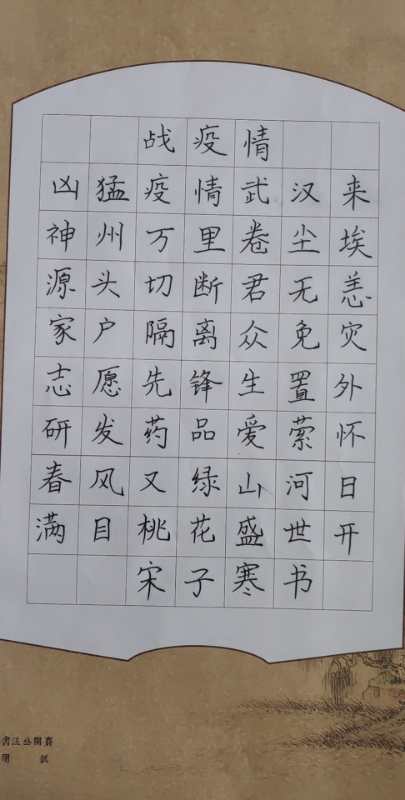 战疫情
凶猛疫情武汉来
神州万里卷尘埃
源头切断君无恙
家户隔离众免灾
志愿先锋生置外
研发药品爱萦怀
春风又绿山河日
满目桃花盛世开
宋子寒书